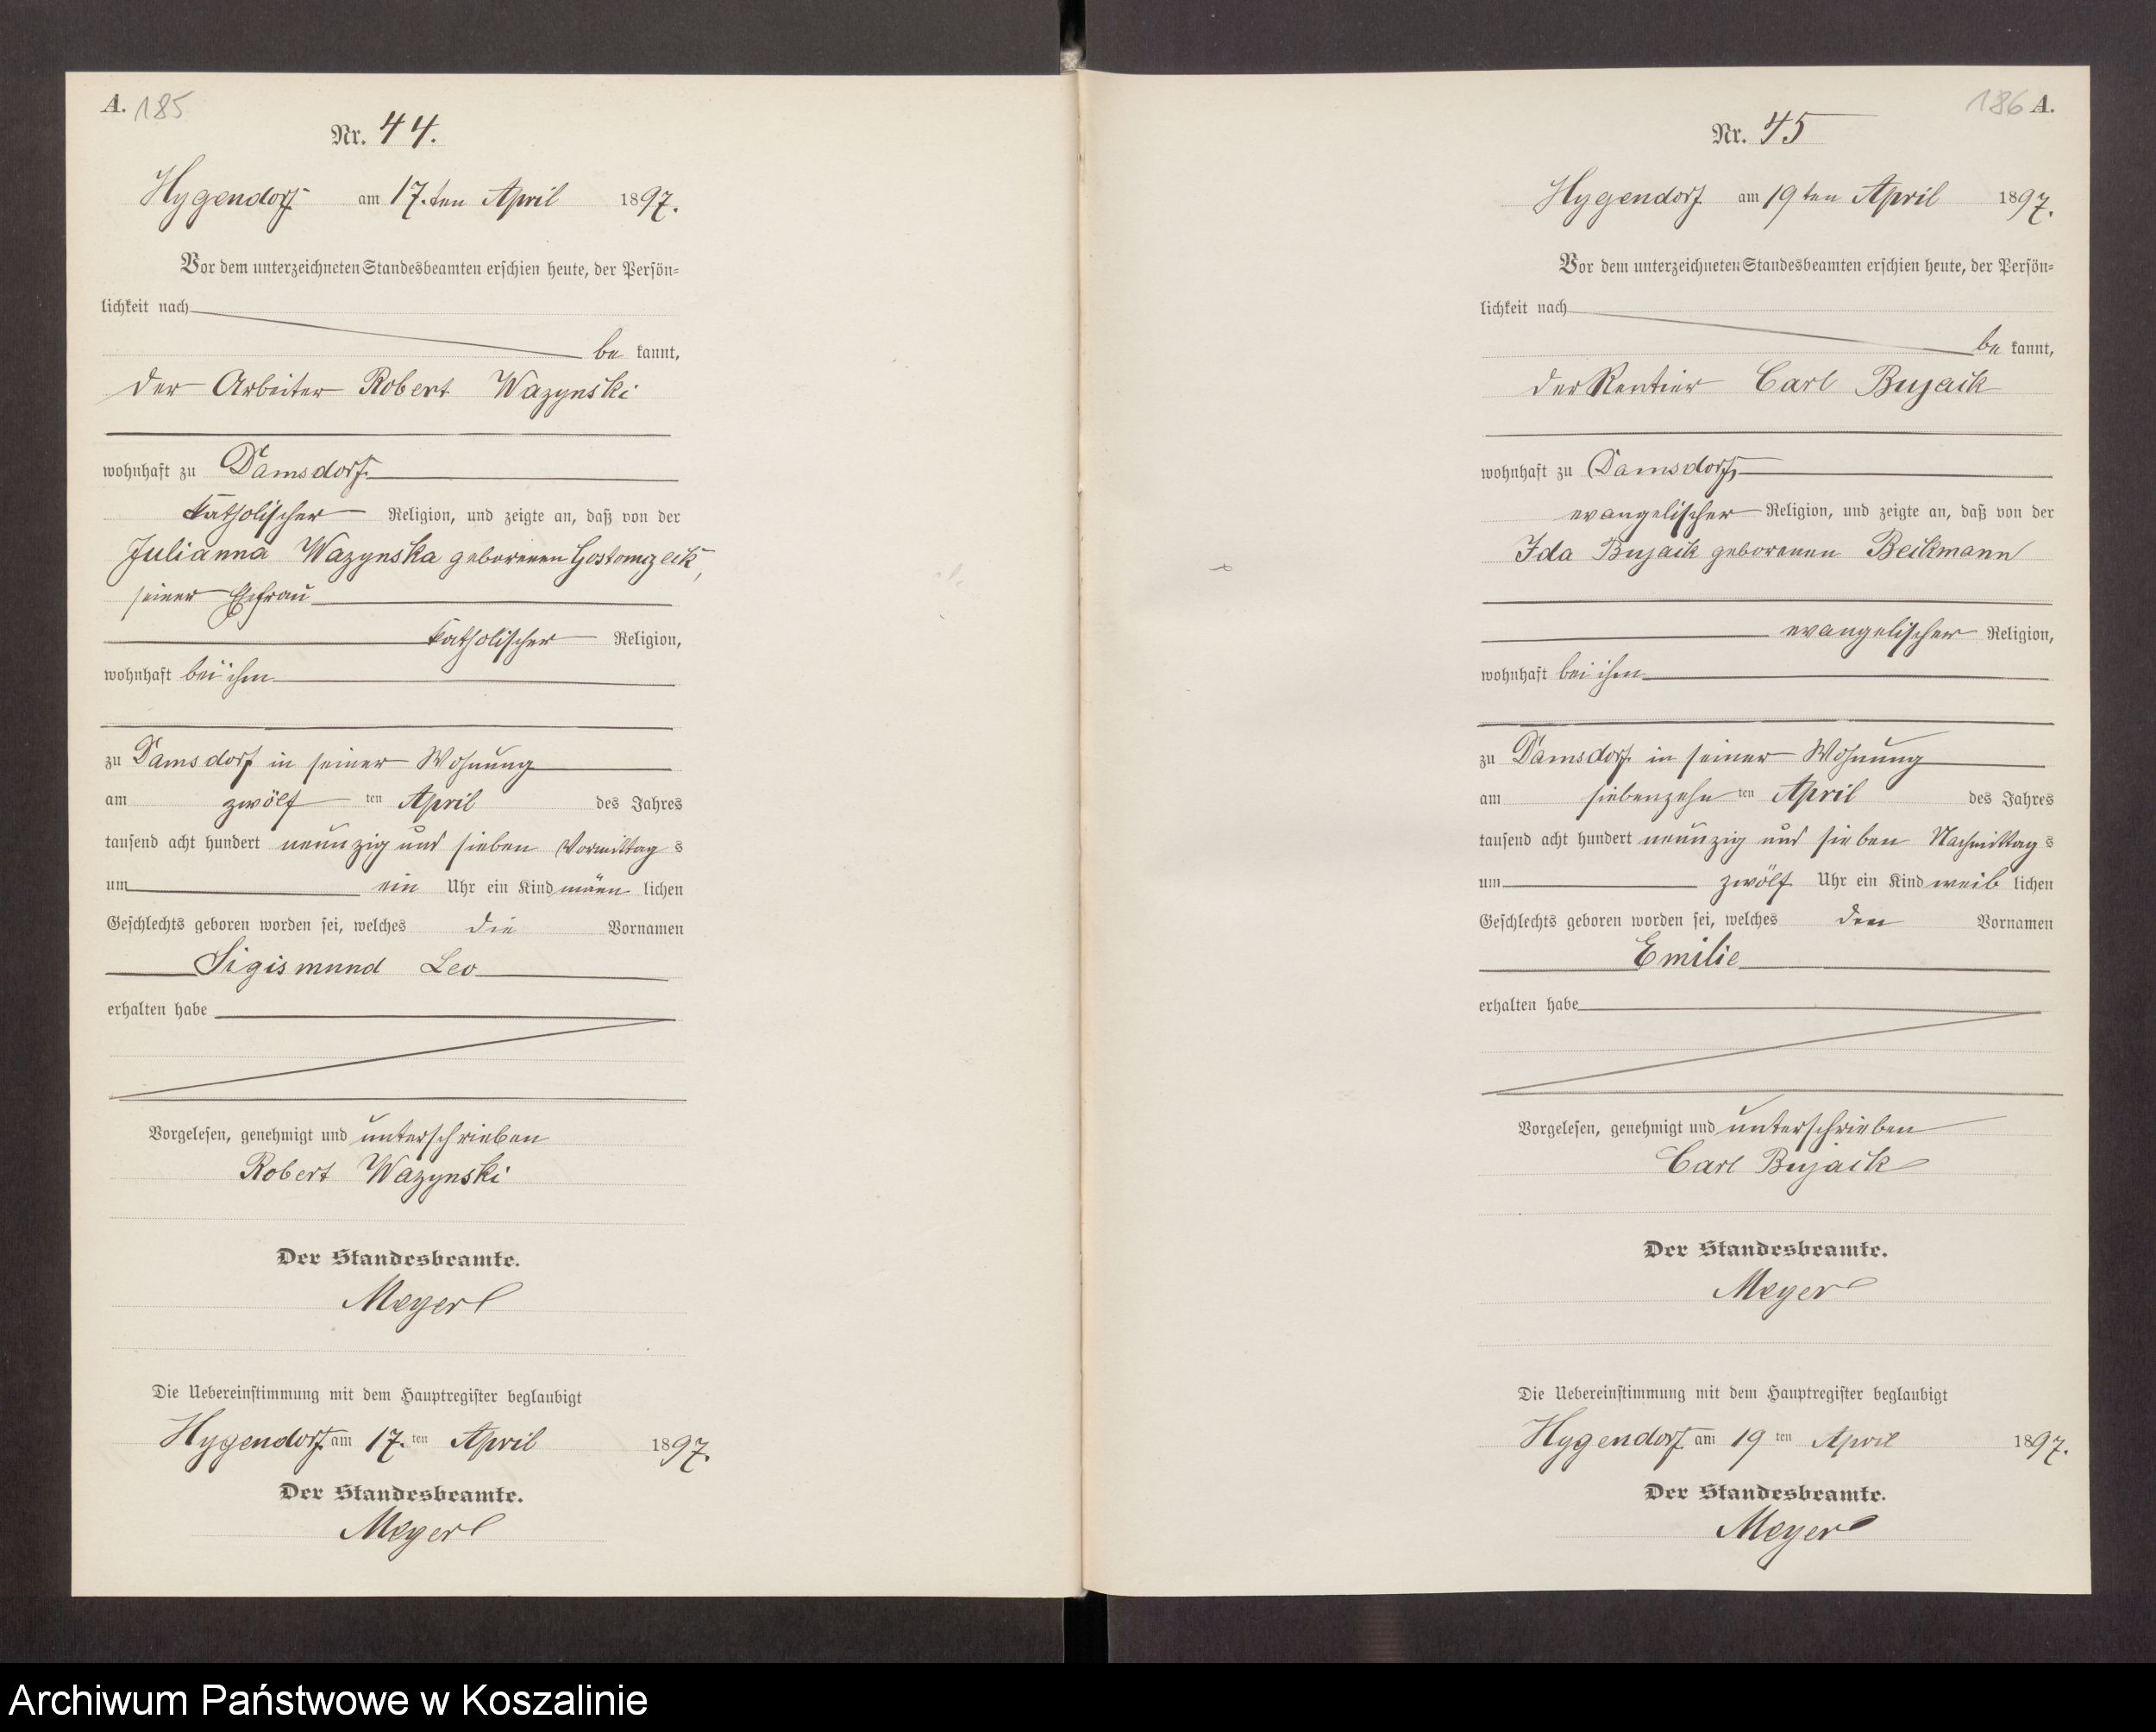 A. 185
Nr. 44.
Hygendorf am 17.ten April 1897.
Vor dem unterzeichneten Standesbeamten erschien heute, der Persön=
lichkeit nach
be kannt,
der Arbeiter Robert Wazynski
wohnhaft zu Damsdorf
katholischer Religion, und zeigte an, daß von der
Julianna Wazynska geborenen Gostomczik,
seiner Ehefrau
katholischer Religion,
wohnhaft bei ihm
zu Damsdorf in seiner Wohnung
am zwölf ten April des Jahres
tausend acht hundert neunzig und sieben Vormittag s
um ein Uhr ein Kind männ lichen
Geschlechts geboren worden sei, welches die Vornamen
Sigismund Leo
erhalten habe
Vorgelesen, genehmigt und unterschrieben
Robert Wazynski
Der Standesbeamte.
Meyer
Die Uebereinstimmung mit dem Hauptregister beglaubigt
Hygendorf am 17. ten April 1897.
Der Standesbeamte.
Meyer
186 A.
Nr. 45
Hygendorf am 19 ten April 1897.
Vor dem unterzeichneten Standesbeamten erschien heute, der Persön=
lichkeit nach
be kannt,
der Rentier Carl Bujack
wohnhaft zu Damsdorf,
evangelischer Religion, und zeigte an, daß von der
Ida Bujack geborenen Beckmann
evangelischer Religion,
wohnhaft bei ihm
zu Damsdorf in seiner Wohnung
am siebenzehn ten April des Jahres
tausend acht hundert neunzig und sieben Nachmittag s
um zwölf Uhr ein Kind weib lichen
Geschlechts geboren worden sei, welches den Vornamen
Emilie
erhalten habe
Vorgelesen, genehmigt und unterschrieben
Carl Bujack
Der Standesbeamte.
Meyer
Die Uebereinstimmung mit dem Hauptregister beglaubigt
Hygendorf am 19 ten April 1897.
Der Standesbeamte.
Meyer
Archiwum Państwowe w Koszalinie